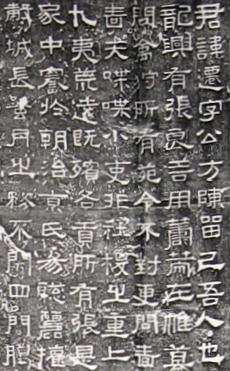 君諱遷字公方陳留己吾人也
龍興有張良善用籌策在帷幕
問禽狩所有苑令不對更問嗇
嗇夫喋喋小吏非社稷之重上
九夷荒遠既殯各貢所有張是
家中謇於朝治京氏易聰麗權
穀城長蠶月之務不閉四門臘